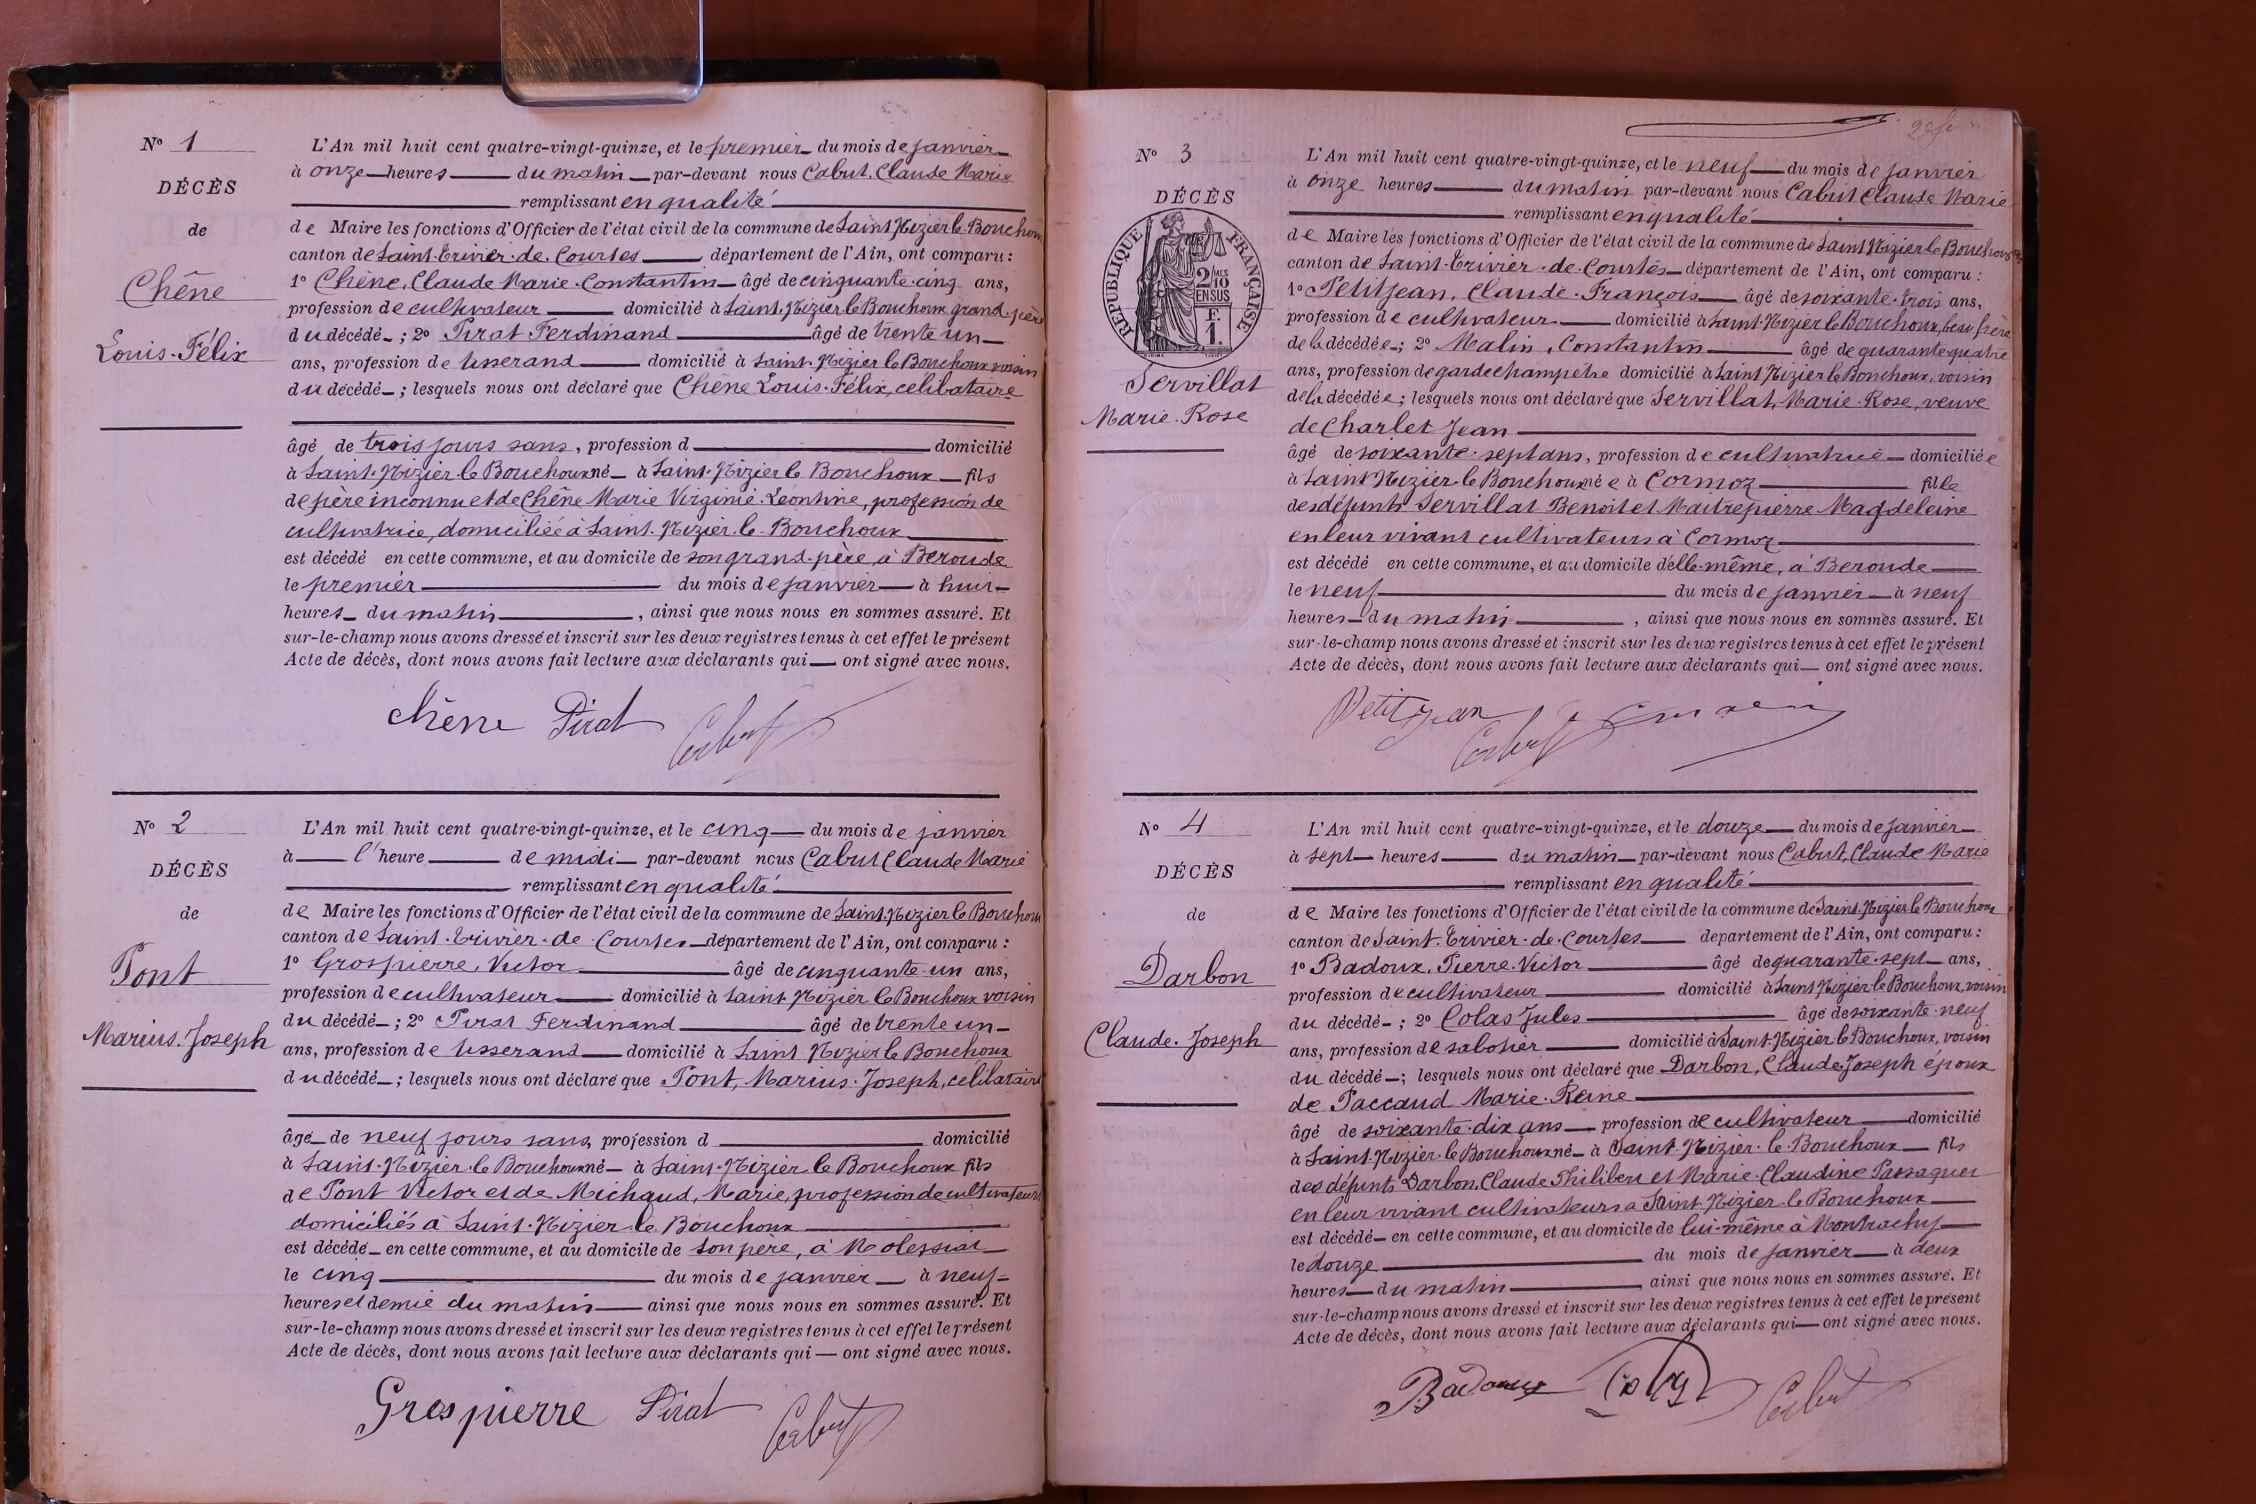 N° 1
DÉCÈS
de
Chêne
Louis-Félix
L'An mil huit cent quatre-vingt-quinze, et le premier du mois de janvier
à onze heures du matin par-devant nous Cabut, Claude Marie
remplissant en qualité
de Maire les fonctions d'Officier de l'état civil de la commune de Saint Nizier le Bouchoux
canton de Saint-Trivier-de-Courtes département de l'Ain, ont comparu :
1° Chêne, Claude Marie Constantin âgé de cinquante-cinq ans,
profession de cultivateur domicilié à Saint-Nizier le Bouchoux grand-père
du décédé ; 2° Pirat Ferdinand âgé de trente un
ans, profession de tisserand domicilié à Saint-Nizier le Bouchoux voisin
du décédé ; lesquels nous ont déclaré que Chêne Louis-Félix, célibataire
âgé de trois jours sans, profession d domicilié
à Saint-Nizier-le Bouchoux né à Saint-Nizier le Bouchoux fils
de père inconnu et de Chêne Marie Virginie Léontine, profession de
cultivatrice, domiciliée à Saint-Nizier-le-Bouchoux
est décédé en cette commune, et au domicile de son grand-père, à Beroude
le premier du mois de janvier à huit
heures du matin, ainsi que nous nous en sommes assuré. Et
sur-le-champ nous avons dressé et inscrit sur les deux registres tenus à cet effet le présent
Acte de décès, dont nous avons fait lecture aux déclarants qui ont signé avec nous.
Chêne Pirat Cabut
N° 2
DÉCÈS
de
Pont
Marius-Joseph
L'An mil huit cent quatre-vingt-quinze, et le cinq du mois de janvier
à l'heure de midi par-devant nous Cabut Claude Marie
remplissant en qualité
de Maire les fonctions d'Officier de l'état civil de la commune de Saint-Nizier le Bouchoux
canton de Saint-Trivier-de-Courtes département de l'Ain, ont comparu :
1° Grospierre, Victor âgé de cinquante-un ans,
profession de cultivateur domicilié à Saint Nizier le Bouchoux voisin
du décédé ; 2° Pirat Ferdinand âgé de trente un
ans, profession de tisserand domicilié à Saint Nizier le Bouchoux
du décédé ; lesquels nous ont déclaré que Pont, Marius-Joseph, célibataire
âgé de neuf jours sans, profession d domicilié
à Saint-Nizier-le Bouchoux né à Saint-Nizier le Bouchoux fils
de Pont Victor et de Michaud, Marie, profession de cultivateurs
domiciliés à Saint-Nizier le Bouchoux
est décédé en cette commune, et au domicile de son père, à Molessiat
le cinq du mois de janvier à neuf
heures et demie du matin ainsi que nous nous en sommes assuré. Et
sur-le-champ nous avons dressé et inscrit sur les deux registres tenus à cet effet le présent
Acte de décès, dont nous avons fait lecture aux déclarants qui ont signé avec nous.
Grospierre Pirat Cabut
N° 3
DÉCÈS
RÉPUBLIQUE FRANÇAISE
2/10 EN SUS
F. 1.
Servillat
Marie-Rose
L'An mil huit cent quatre-vingt-quinze, et le neuf du mois de janvier
à onze heures du matin par-devant nous Cabut Claude Marie
remplissant en qualité
de Maire les fonctions d'Officier de l'état civil de la commune de Saint Nizier le Bouchoux
canton de Saint-Trivier-de-Courtes département de l'Ain, ont comparu :
1° Petitjean, Claude-François âgé de soixante-trois ans,
profession de cultivateur domicilié à Saint-Nizier le Bouchoux, beau frère
de la décédée ; 2° Malin, Constantin âgé de quarante quatre
ans, profession de garde champêtre domicilié à Saint Nizier le Bouchoux, voisin
de la décédée ; lesquels nous ont déclaré que Servillat, Marie-Rose, veuve
de Charlet Jean
âgé de soixante-sept ans, profession de cultivatrice domiciliée
à Saint Nizier-le Bouchoux née à Cormoz fille
des défunts Servillat Benoit et Maitrepierre Magdeleine
en leur vivant cultivateurs à Cormoz
est décédé en cette commune, et au domicile d'elle-même, à Beroude
le neuf du mois de janvier à neuf
heures du matin, ainsi que nous nous en sommes assuré. Et
sur-le-champ nous avons dressé et inscrit sur les deux registres tenus à cet effet le présent
Acte de décès, dont nous avons fait lecture aux déclarants qui ont signé avec nous.
Petitjean Cabut
N° 4
DÉCÈS
de
Darbon
Claude-Joseph
L'An mil huit cent quatre-vingt-quinze, et le douze du mois de janvier
à sept heures du matin par-devant nous Cabut, Claude Marie
remplissant en qualité
de Maire les fonctions d'Officier de l'état civil de la commune de Saint-Nizier le Bouchoux
canton de Saint-Trivier-de-Courtes département de l'Ain, ont comparu :
1° Badoux, Pierre-Victor âgé de quarante-sept ans,
profession de cultivateur domicilié à Saint Nizier le Bouchoux, voisin
du décédé ; 2° Colas Jules âgé de soixante-neuf
ans, profession de sabotier domicilié à Saint-Nizier le Bouchoux, voisin
du décédé ; lesquels nous ont déclaré que Darbon, Claude Joseph époux
de Paccaud Marie-Reine
âgé de soixante-dix ans profession de cultivateur domicilié
à Saint-Nizier-le Bouchoux né à Saint-Nizier-le-Bouchoux fils
des défunts Darbon Claude Philibert et Marie-Claudine Passaquet
en leur vivant cultivateurs à Saint-Nizier-le Bouchoux
est décédé en cette commune, et au domicile de lui-même à Montrachy
le douze du mois de janvier à deux
heures du matin ainsi que nous nous en sommes assuré. Et
sur-le-champ nous avons dressé et inscrit sur les deux registres tenus à cet effet le présent
Acte de décès, dont nous avons fait lecture aux déclarants qui ont signé avec nous.
Badoux Colas Cabut